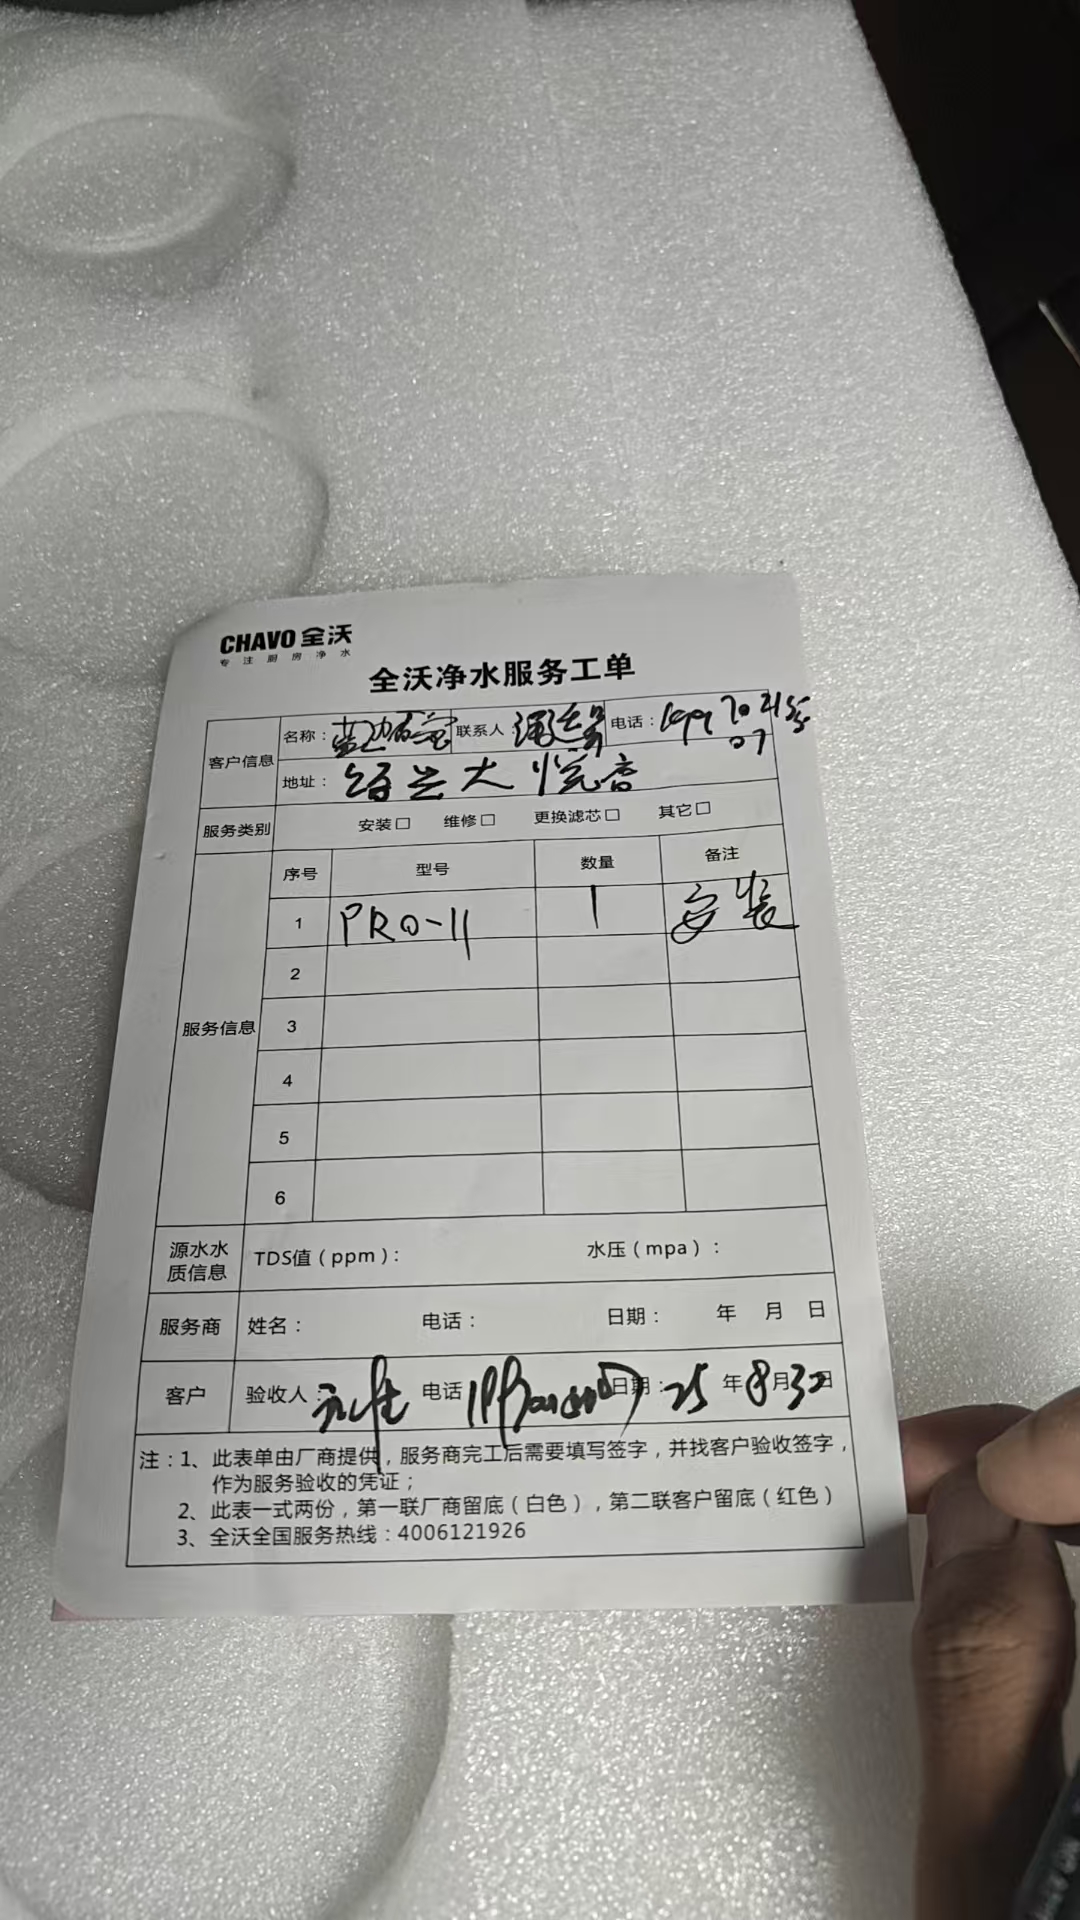 CHAVO 全沃
专注厨房净水
全沃净水服务工单
客户信息
名称： 联系人： 电话：
地址：绍兴大悦
服务类别 安装□ 维修□ 更换滤芯□ 其它□
服务信息
序号 型号 数量 备注
1 PRO-11 1 安装
2
3
4
5
6
源水水质信息 TDS值（ppm）： 水压（mpa）：
服务商 姓名： 电话： 日期： 年 月 日
客户 验收人： 电话 日期：25年8月30日
注：1、此表单由厂商提供，服务商完工后需要填写签字，并找客户验收签字，
作为服务验收的凭证；
2、此表一式两份，第一联厂商留底（白色），第二联客户留底（红色）
3、全沃全国服务热线：4006121926